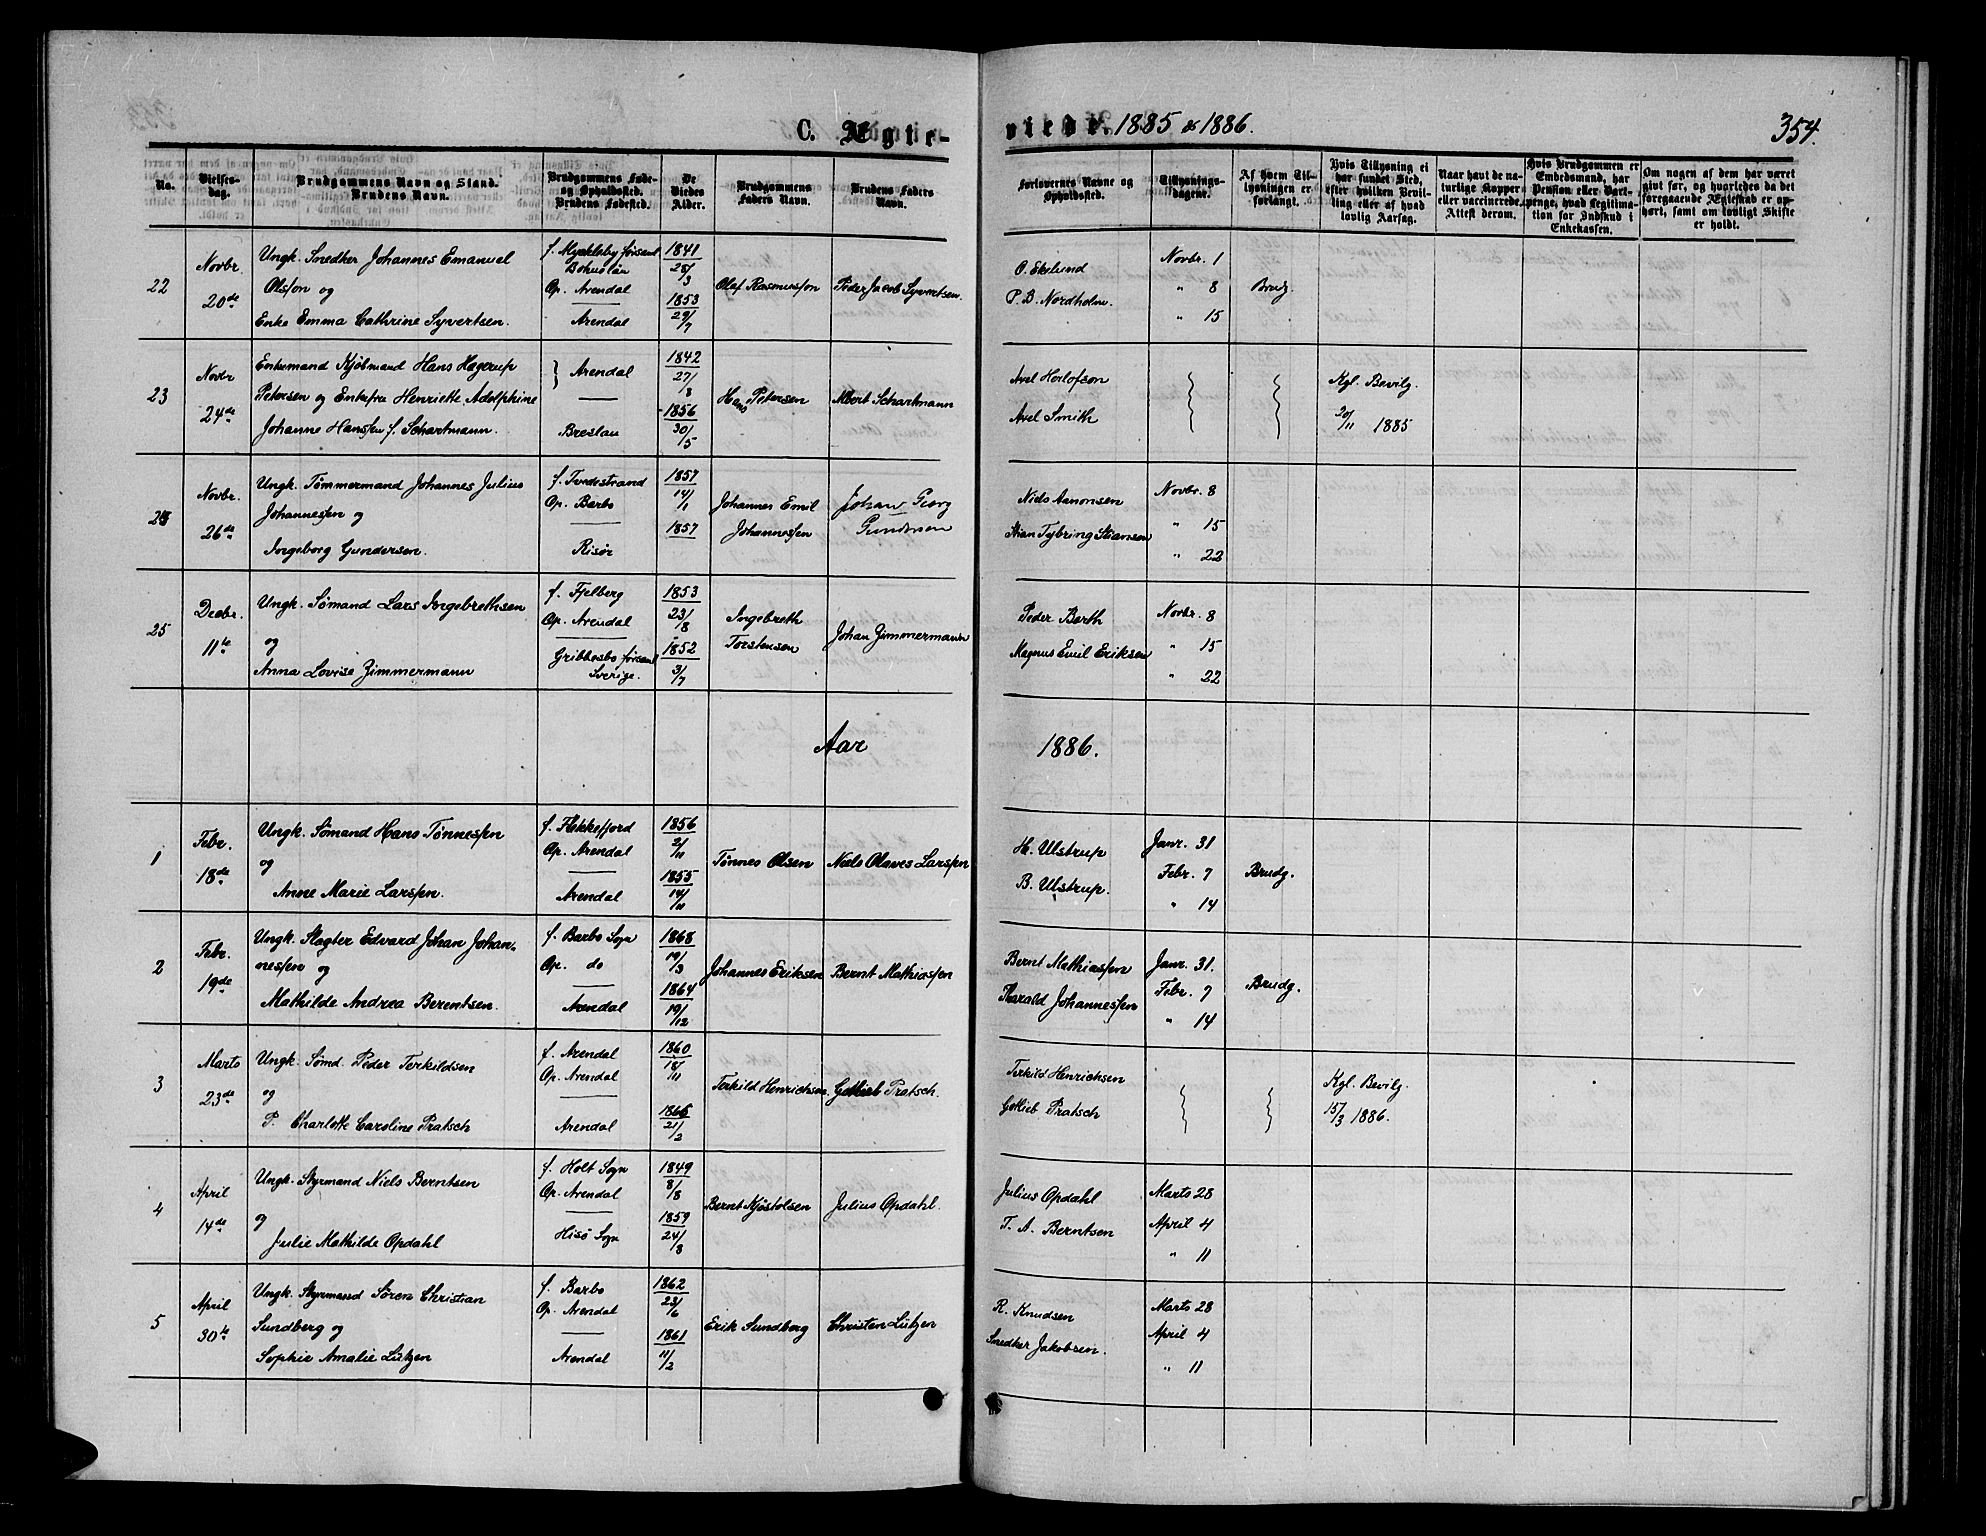 C. Ægte-
viede. 1885 & 1886.
354.
No.
Vielses-
dag.
Brudgommens Navn og Stand.
Brudens Navn.
Brudgommens Føde-
og Opholdssted.
Brudens Fødested.
De
Viedes
Alder.
Brudgommens
Faders Navn.
Brudens Faders
Navn.
Forlovernes Navne og
Opholdssted.
Tillysnings-
dagene.
Af hvem Til-
lysningen er
forlangt.
Hvis Tillysning ei
har fundet Sted,
efter hvilken Bevil-
ling eller af hvad
lovlig Aarsag.
Naar havt de na-
turlige Kopper
eller vaccinerede.
Attest derom.
Hvis Brudgommen er
Embedsmand, har
Pension eller Vart-
penge, hvad Legitima-
tion for Indskud i
Enkekassen.
Om nogen af dem har været
givt før, og hvorledes da det
foregaaende Ægteskab er op-
hørt, samt om lovligt Skifte
er holdt.
22
Novbr.
20de
Ungk. Snedker Johannes Emanuel
Olsson og
Enke Emma Cathrine Syvertsen.
f. Myckleby församl
Bohuslän
Op. Arendal
Arendal
1841
28/3
1853
29/7
Olaf Rasmusson
Peder Jacob Syvertsen.
O. Ekelund
P. B. Nordholm.
Novbr. 1
" 8
" 15
Brudg.
23
Novbr
24de
Enkemand Kjøbmand Hans Hagerup
Petersen og Enkefru Henriette Adolphine
Johanne Hanssen f. Schartmann.
Arendal
Breslau
1842
27/8
1856
30/5
Hans Petersen
Albert Schartmann
Axel Herlofson
Axel Smith
Kgl. Bevilg.
20/11 1885
24
Novbr.
26de
Ungk. Tømmermand Johannes Julius
Johannessen og
Ingeborg Gundersen.
f. Tvedestrand
Op. Barbo
Risør
1857
14/1
1857
Johannes Emil
Johannessen
Johan Georg
Gundersen
Niels Aanonsen
Stian Tybring Stiansen
Novbr. 8
" 15
" 22
25
Decbr.
11te
Ungk. Sømand Lars Ingebrethsen
og
Anna Lovise Zimmermann
f. Fjelberg
Op. Arendal
Gribbesbo församl
Sverige.
1853
23/8
1852
3/7
Ingebreth
Torstensen
Johan Zimmermann
Peder Berth
Magnus Emil Eriksen
Novbr. 8
" 15
" 22
Aar
1886.
1
Febr.
18de
Ungk. Sømand Hans Tønnessen
og
Anne Marie Larssen.
f. Flekkefjord
Op. Arendal
Arendal
1856
2/11
1855
14/11
Tønnes Olsen
Niels Olaves Larssen
H. Ulstrup
B. Ulstrup.
Janr. 31
Febr. 7
" 14
Brudg.
2
Febr.
19de
Ungk. Slagter Edvard Johan Johan-
nessen og
Mathilde Andrea Berentsen.
f. Barbo Sogn
Op. do
Arendal
1868
19/3
1864
19/12
Johannes Eriksen
Bernt Mathiassen
Bernt Mathiassen
Harald Johannessen
Janr. 31.
Febr. 7
" 14
Brudg.
3
Marts
23de
Ungk. Sømd. Peder Terkildsen
og
P. Charlotte Caroline Pratsch
f. Arendal
Op. Arendal
Arendal
1860
18/111
1866
21/2
Terkild Henrichsen
Gottlieb Pratsch.
Terkild Henrichsen
Gottlieb Pratsch
Kgl. Bevilg.
15/3 1886.
4
April
14de
Ungk. Styrmand Niels Berntsen
og
Julie Mathilde Opdahl
f. Holt Sogn
Op. Arendal
Hisø Sogn
1849
8/8
1859
24/8
Bernt Kjøstolsen
Julius Opdahl.
Julius Opdahl
T. A. Berntsen
Marts 28
April 4
" 11
5
April
30te
Ungk. Styrmand Søren Christian
Sundberg og
Sophie Amalie Lützen
f. Barbo
Op. Arendal
Arendal
1862
23/6
1861
11/2
Erik Sundberg
Christen Lützen
R. Knudsen
Snedker Jakobsen.
Marts 28
April 4
" 11